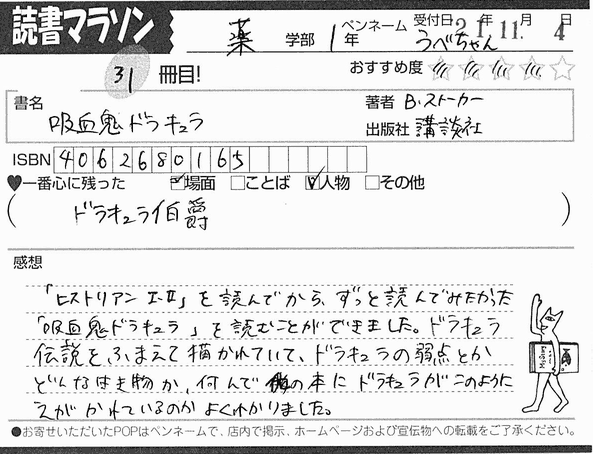 読書マラソン
薬 学部 1年 ペンネーム うべちゃん 受付日 21年 11月 4日
31 冊目! おすすめ度
書名 吸血鬼ドラキュラ
著者 B・ストーカー
出版社 講談社
ISBN 4062680165
♥一番心に残った ☑場面 □ことば ☑人物 □その他
(ドラキュラ伯爵)
感想
「ヒストリアンⅠ・Ⅱ」を読んでから、ずっと読んでみたかった
「吸血鬼ドラキュラ」を読むことができました。ドラキュラ
伝説をふまえて描かれていて、ドラキュラの弱点とか
どんなはき物か、何んで の本にドラキュラがこのように
えがかれているのかよくわかりました。
●お寄せいただいたPOPはペンネームで、店内で掲示、ホームページおよび宣伝物への転載をご了承ください。